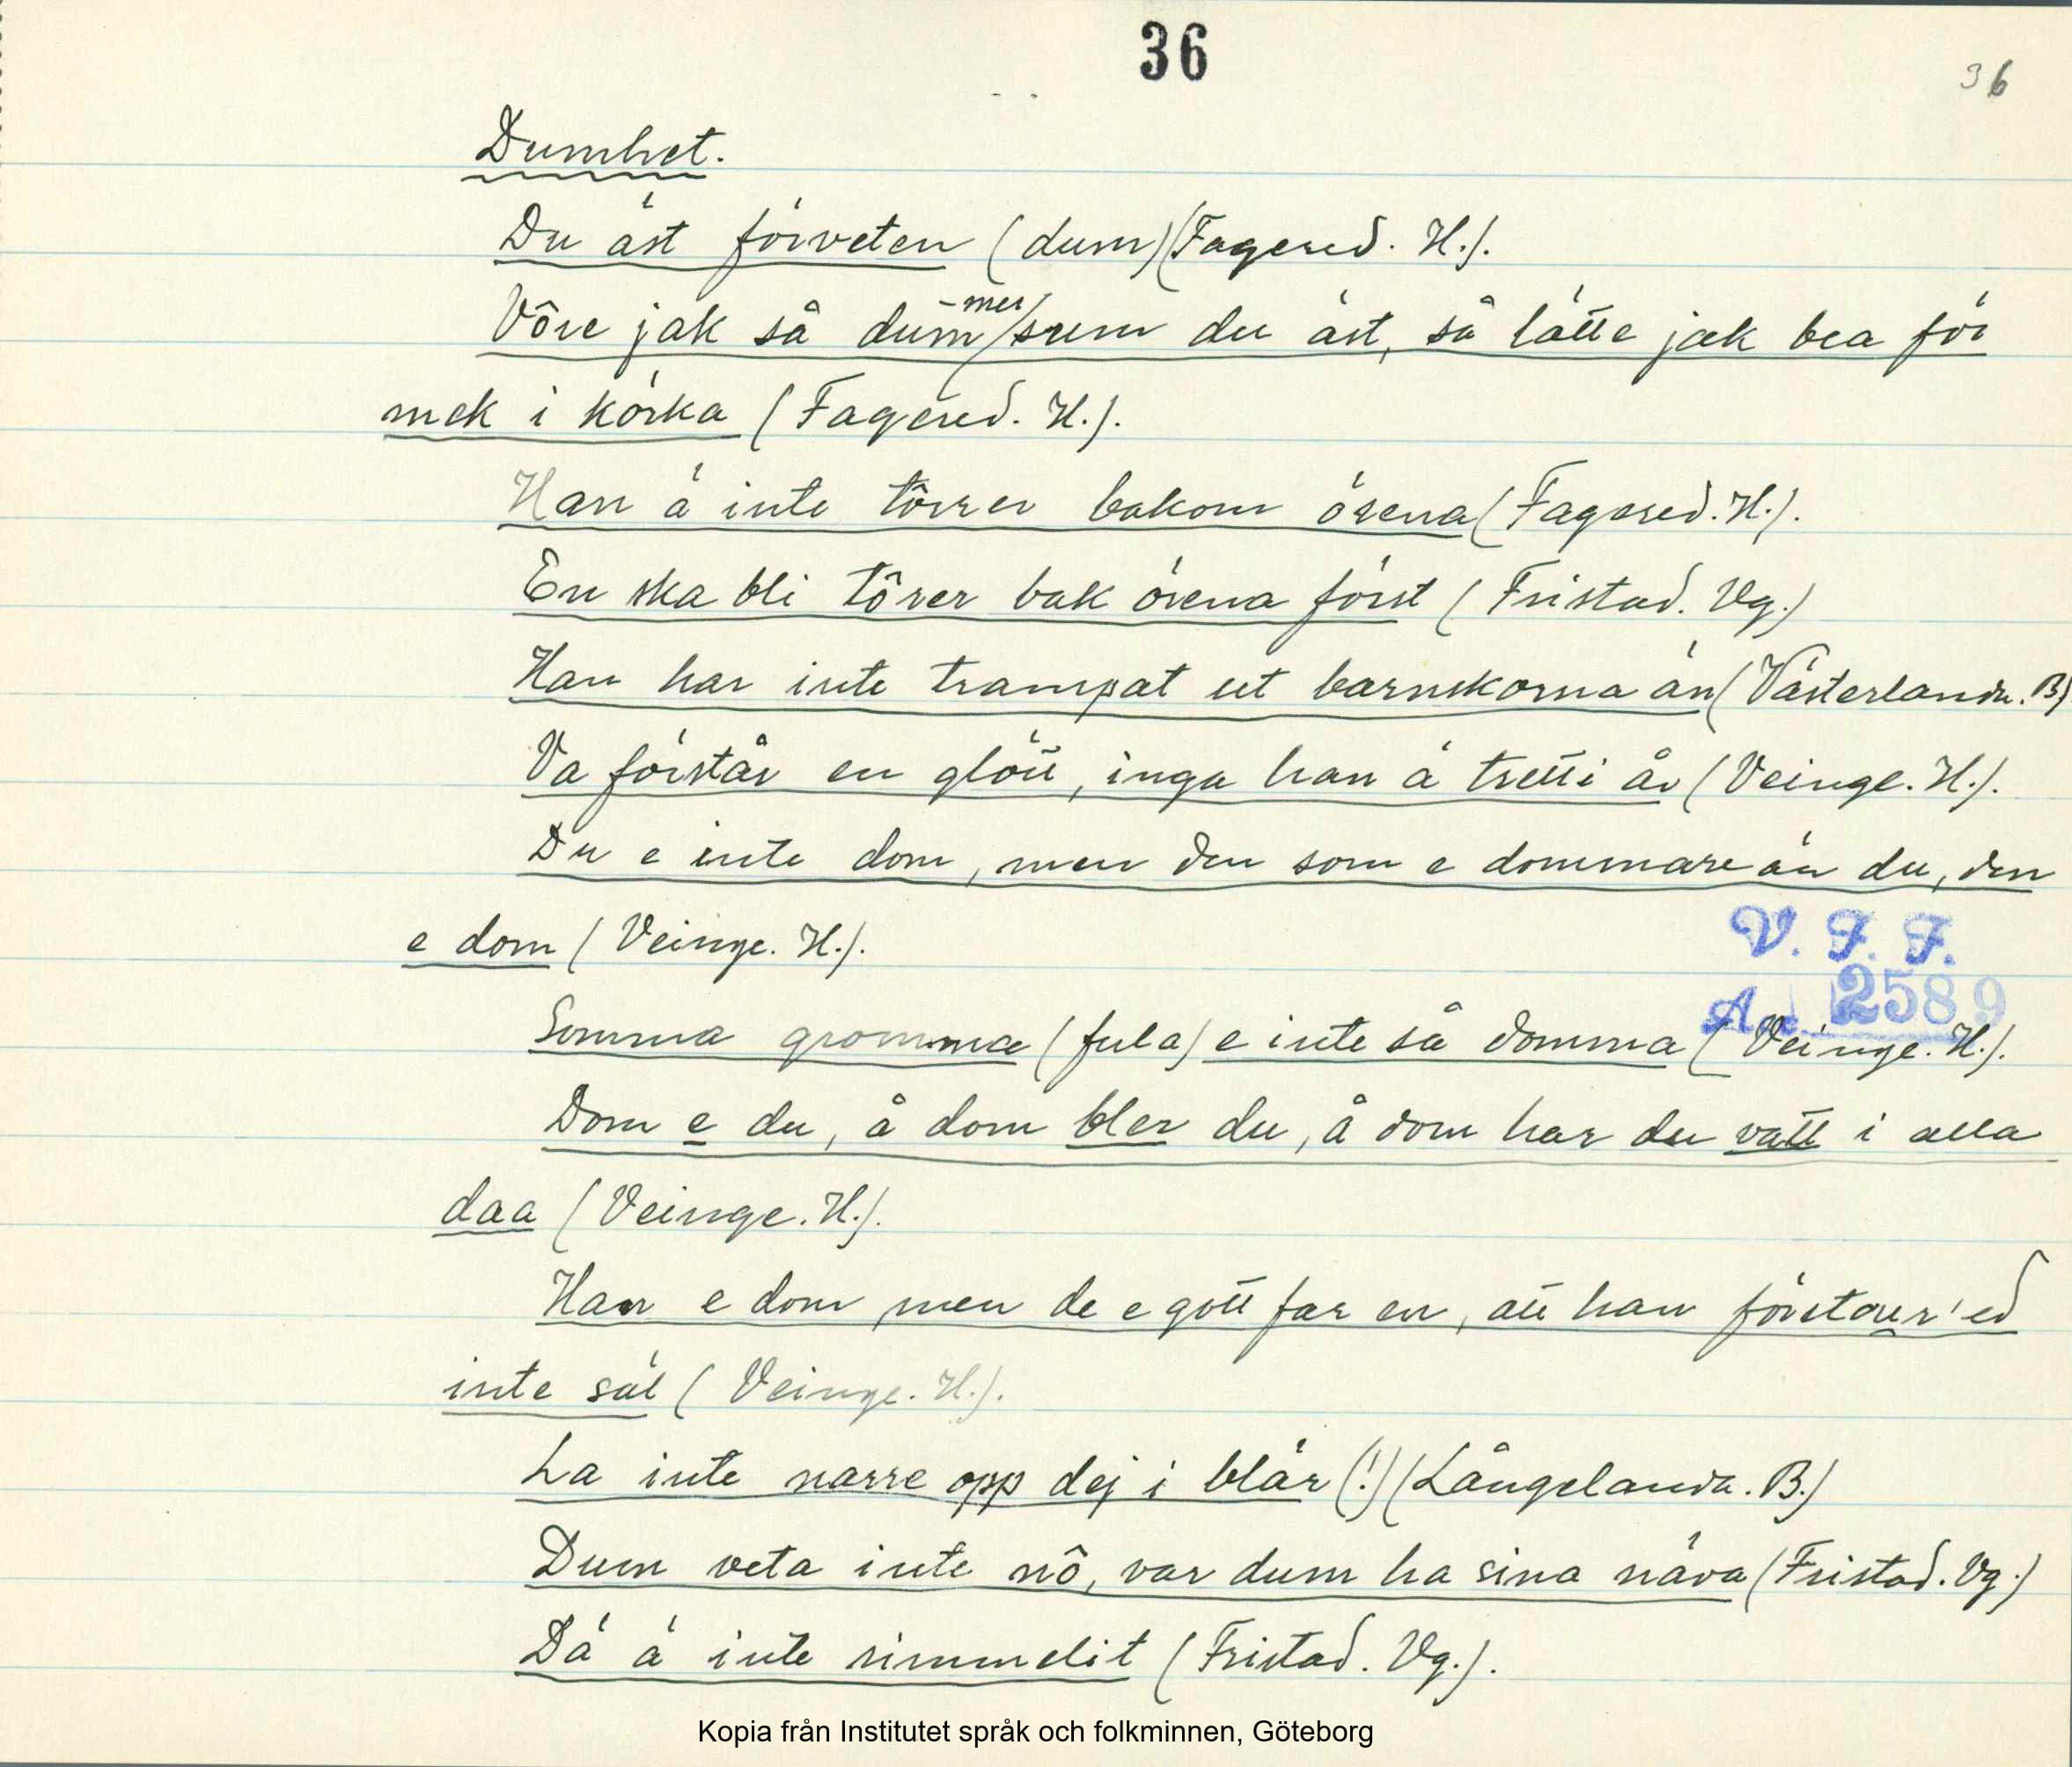 36
36
Dumhet.
Du äst förveten (dum) (Fagered. H.).
-mer
Vôre jak så dum/sum du äst, så lätte jak bea för
mek i körka (Fagered. H.).
Han ä inte tôrrer bakom örena (Fagered. H.).
En ska bli tôrer bak örena först (Fristad. Vg.)
Han har inte trampat ut barnskorna än (Västerlanda. B)
Va förstår en glött, inga han ä tretti år (Veinge. H.).
Du e inte dom, men den som e dommare än du, den
e dom (Veinge. H.).
V. F. F.
A 2589
Somma gromma (fula) e inte så domma (Veinge. H.).
Dom e du, å dom bler du, å dom har du vatt i alla
daa (Veinge. H.).
Han e dom, men de e gott far en, att han förstour'ed
inte säl (Veinge. H.).
La inte narre opp dej i blår (!) (Långelanda. B.)
Dum veta inte nô, var dum ha sina näva (Fristad. Vg.)
Dä ä inte rimmelit (Fristad. Vg.).
Kopia från Institutet språk och folkminnen, Göteborg